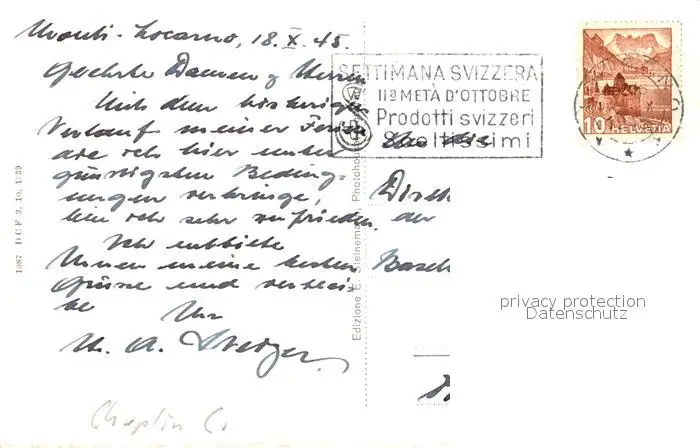 Monti-Locarno, 18. X. 45.
Geehrte Damen & Herren
Mit dem bisherigen
Verlauf meiner Ferien,
die ich hier unter
günstigsten Beding-
ungen verbringe,
bin ich sehr zufrieden.
Ich entbiete
Ihnen meine besten
Grüsse und verblei-
be Ihr
SETTIMANA SVIZZERA
IIa METÀ D'OTTOBRE
Prodotti svizzeri
Sceltissimi
10 HELVETIA
der
1087 DCF 3. 10. 1939
Edizione E. Steinemann, Photohou
privacy protection
Datenschutz